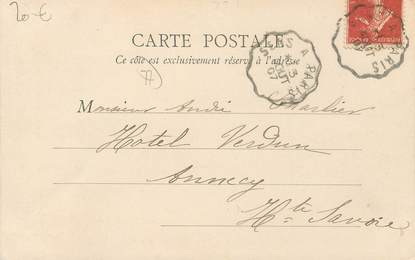 20-€
CARTE POSTALE
Ce côté est exclusivement réservé à l'adresse
77)
A PARIS
3
07
PARIS
Monsieur André Charlier
Hotel Verdun
Annecy
Hte Savoie